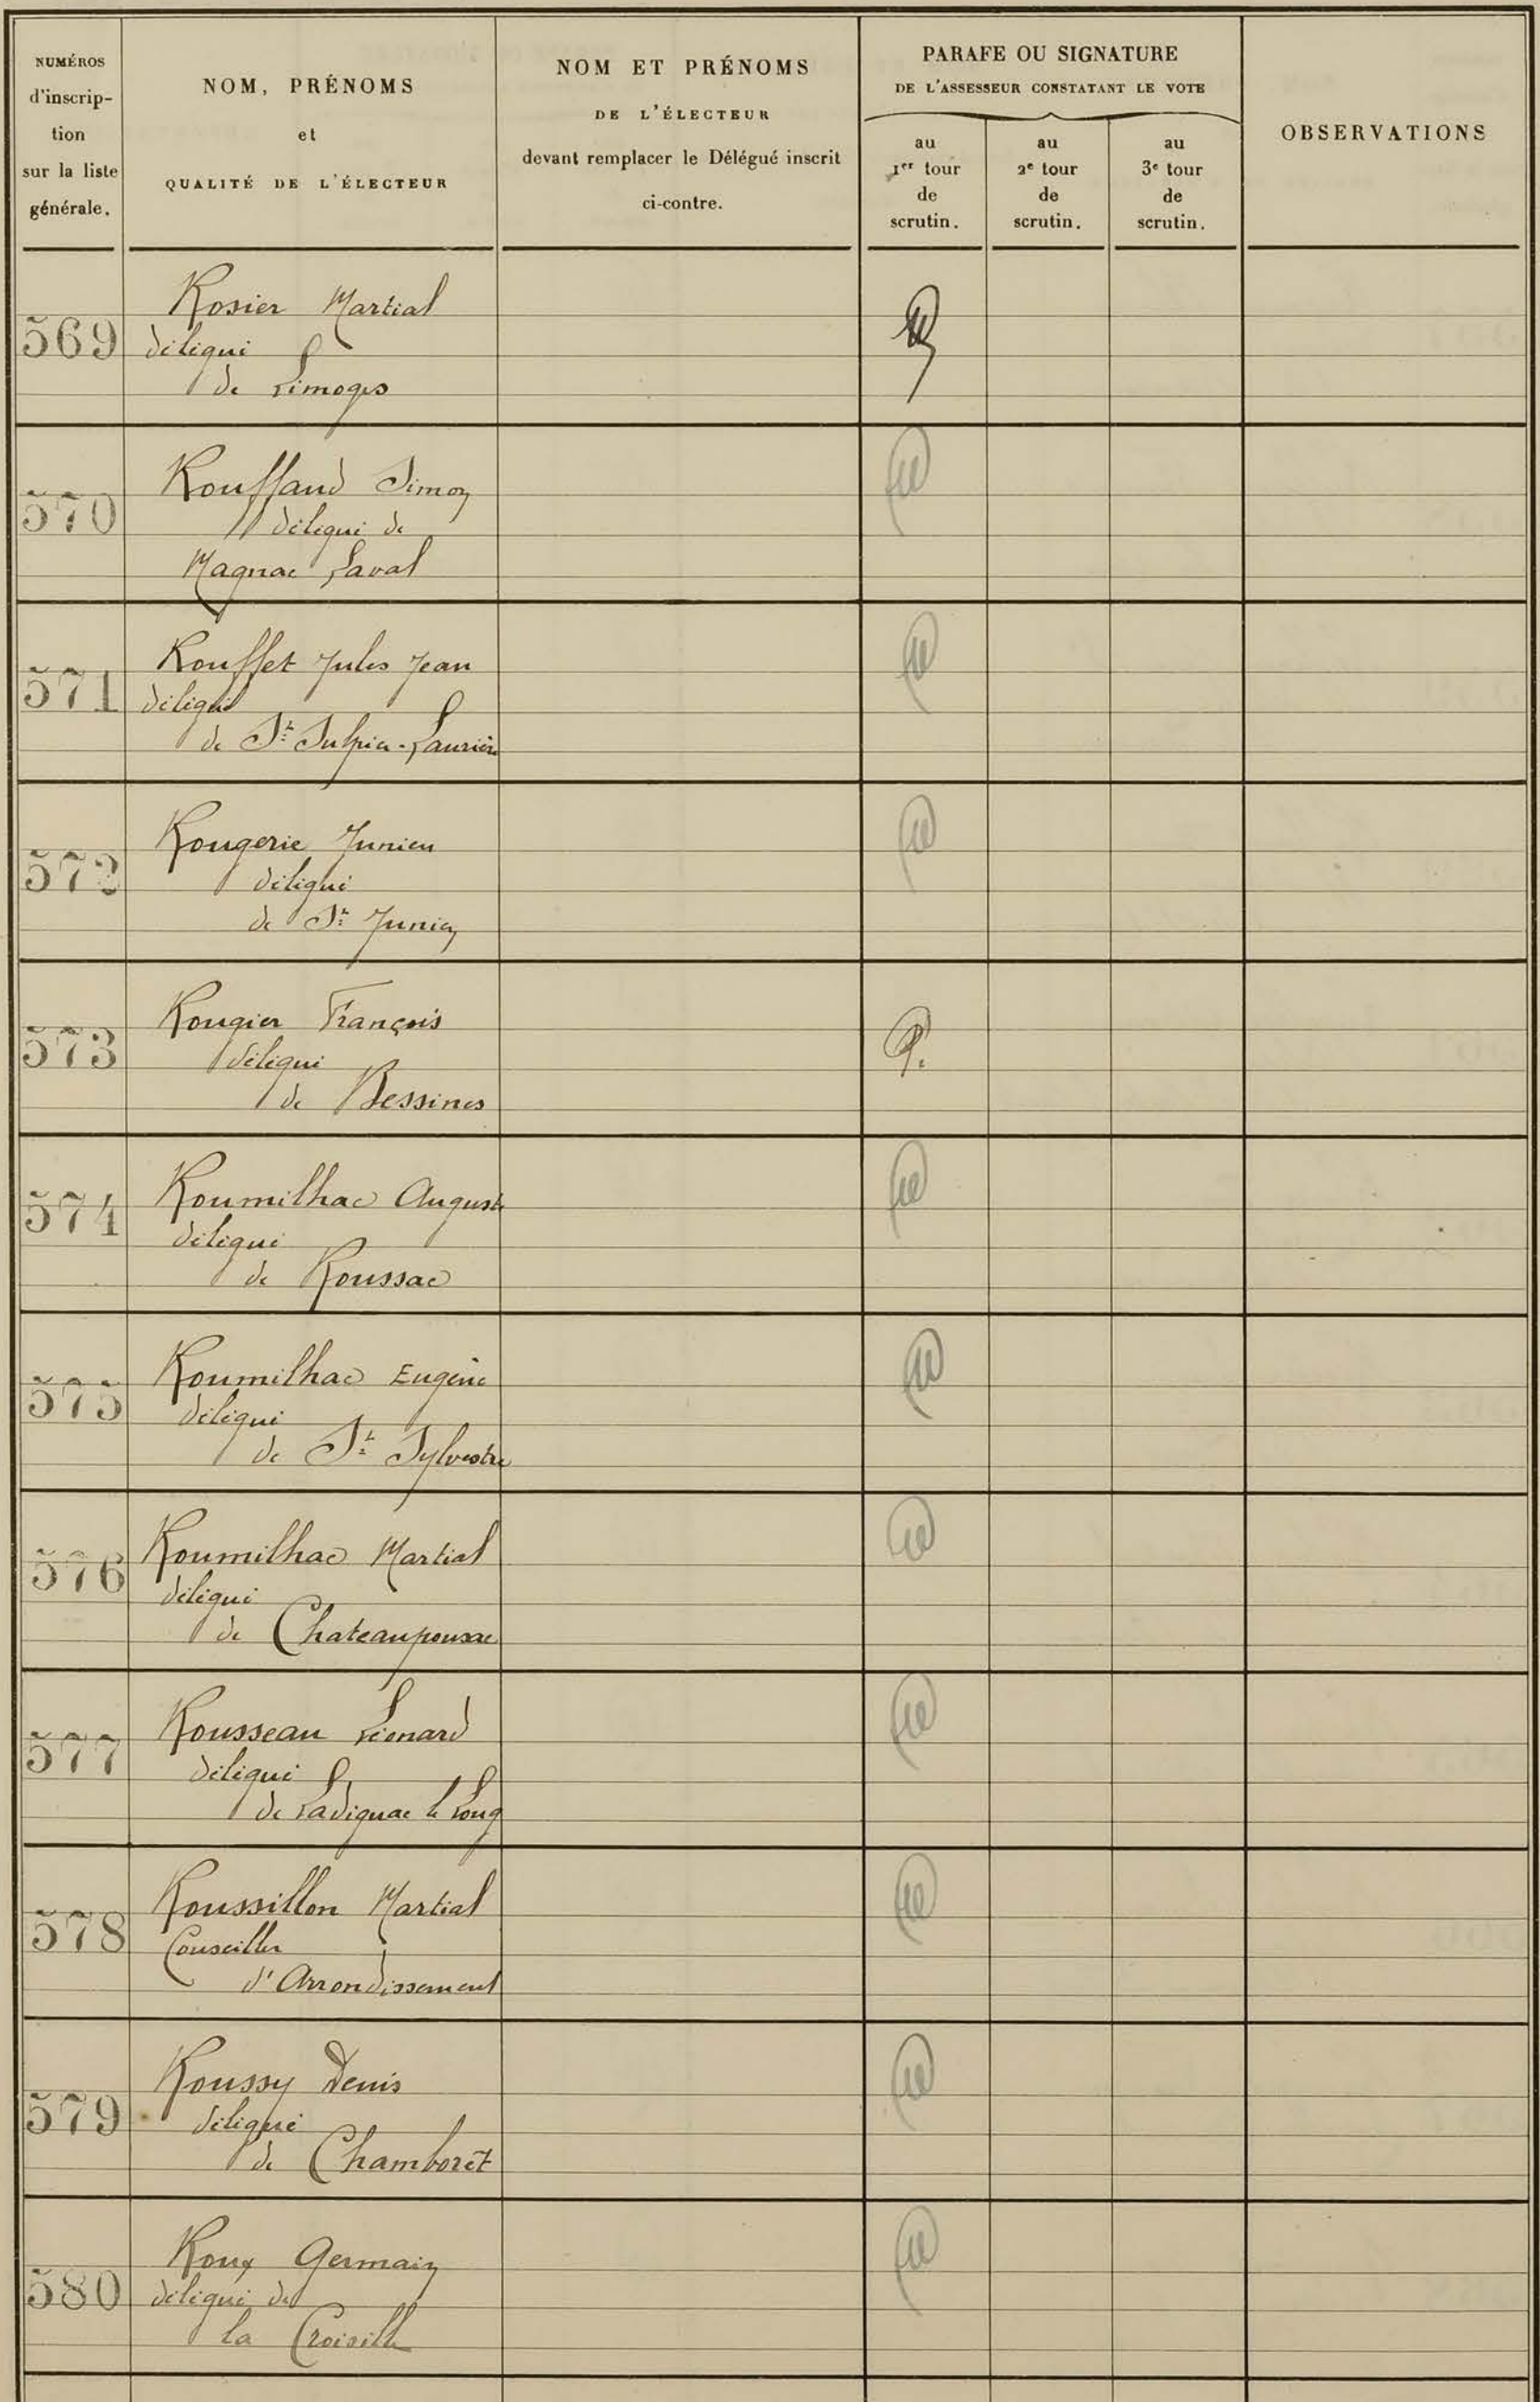 NUMÉROS
d'inscrip-
tion
sur la liste
générale.
NOM, PRÉNOMS
et
QUALITÉ DE L'ÉLECTEUR
NOM ET PRÉNOMS
DE L'ÉLECTEUR
devant remplacer le Délégué inscrit
ci-contre.
PARAFE OU SIGNATURE
DE L'ASSESSEUR CONSTATANT LE VOTE
au
1er tour
de
scrutin.
au
2e tour
de
scrutin.
au
3e tour
de
scrutin.
OBSERVATIONS
Rosier Martial
569 délégué
de Limoges
Rouffaud Simon
570 délégué de
Magnac Laval
Rouffet Jules Jean
571 délégué
de St Sulpice-Laurière
Rougerie Junien
572 délégué
de St Junien
Rougier François
573 délégué
de Bessines
Roumilhac Auguste
574 délégué
de Roussac
Roumilhac Eugène
575 délégué
de St Sylvestre
Roumilhac Martial
576 délégué
de Chateauponsac
Rousseau Léonard
577 délégué
de Ladignac le Long
Roussillon Martial
578 Conseiller
d'Arrondissement
Roussy Denis
579 délégué
de Chamborêt
Roux Germain
580 délégué de
la Croisille